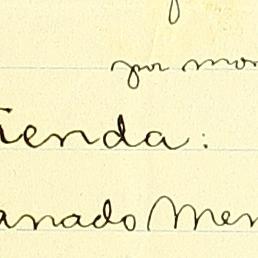 por mor
ienda:
anado Men